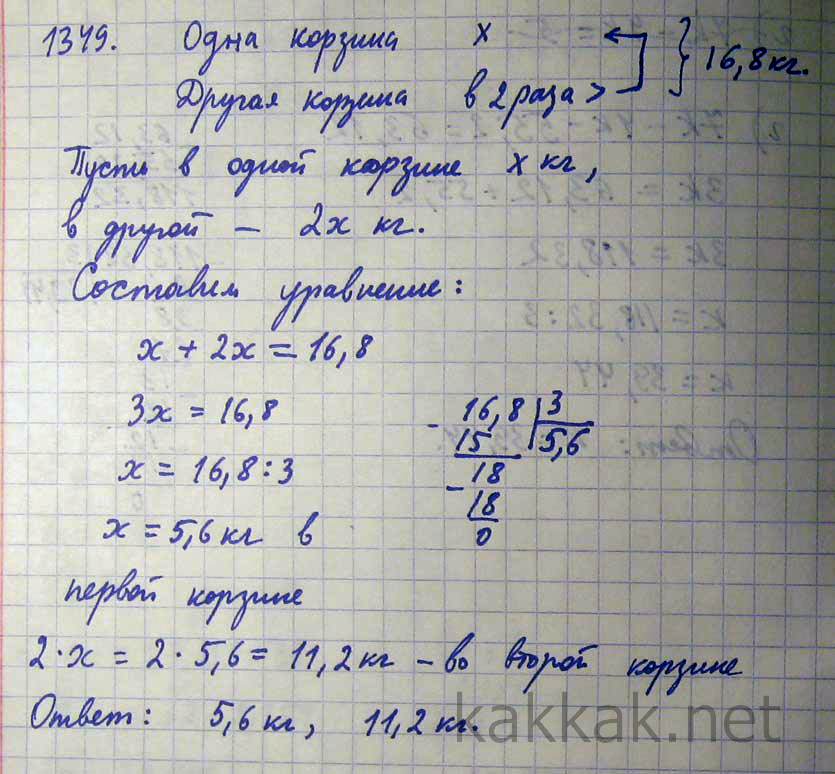 1349. Одна корзина x } 16,8 кг.
Другая корзина в 2 раза >
Пусть в одной корзине x кг,
в другой – 2x кг.
Составим уравнение:
x + 2x = 16,8
3x = 16,8
x = 16,8 : 3
x = 5,6 кг в
первой корзине
- 16,8 | 3
15 5,6
- 18
18
0
2 · x = 2 · 5,6 = 11,2 кг – во второй корзине
Ответ: 5,6 кг, 11,2 кг.
kakkak.net